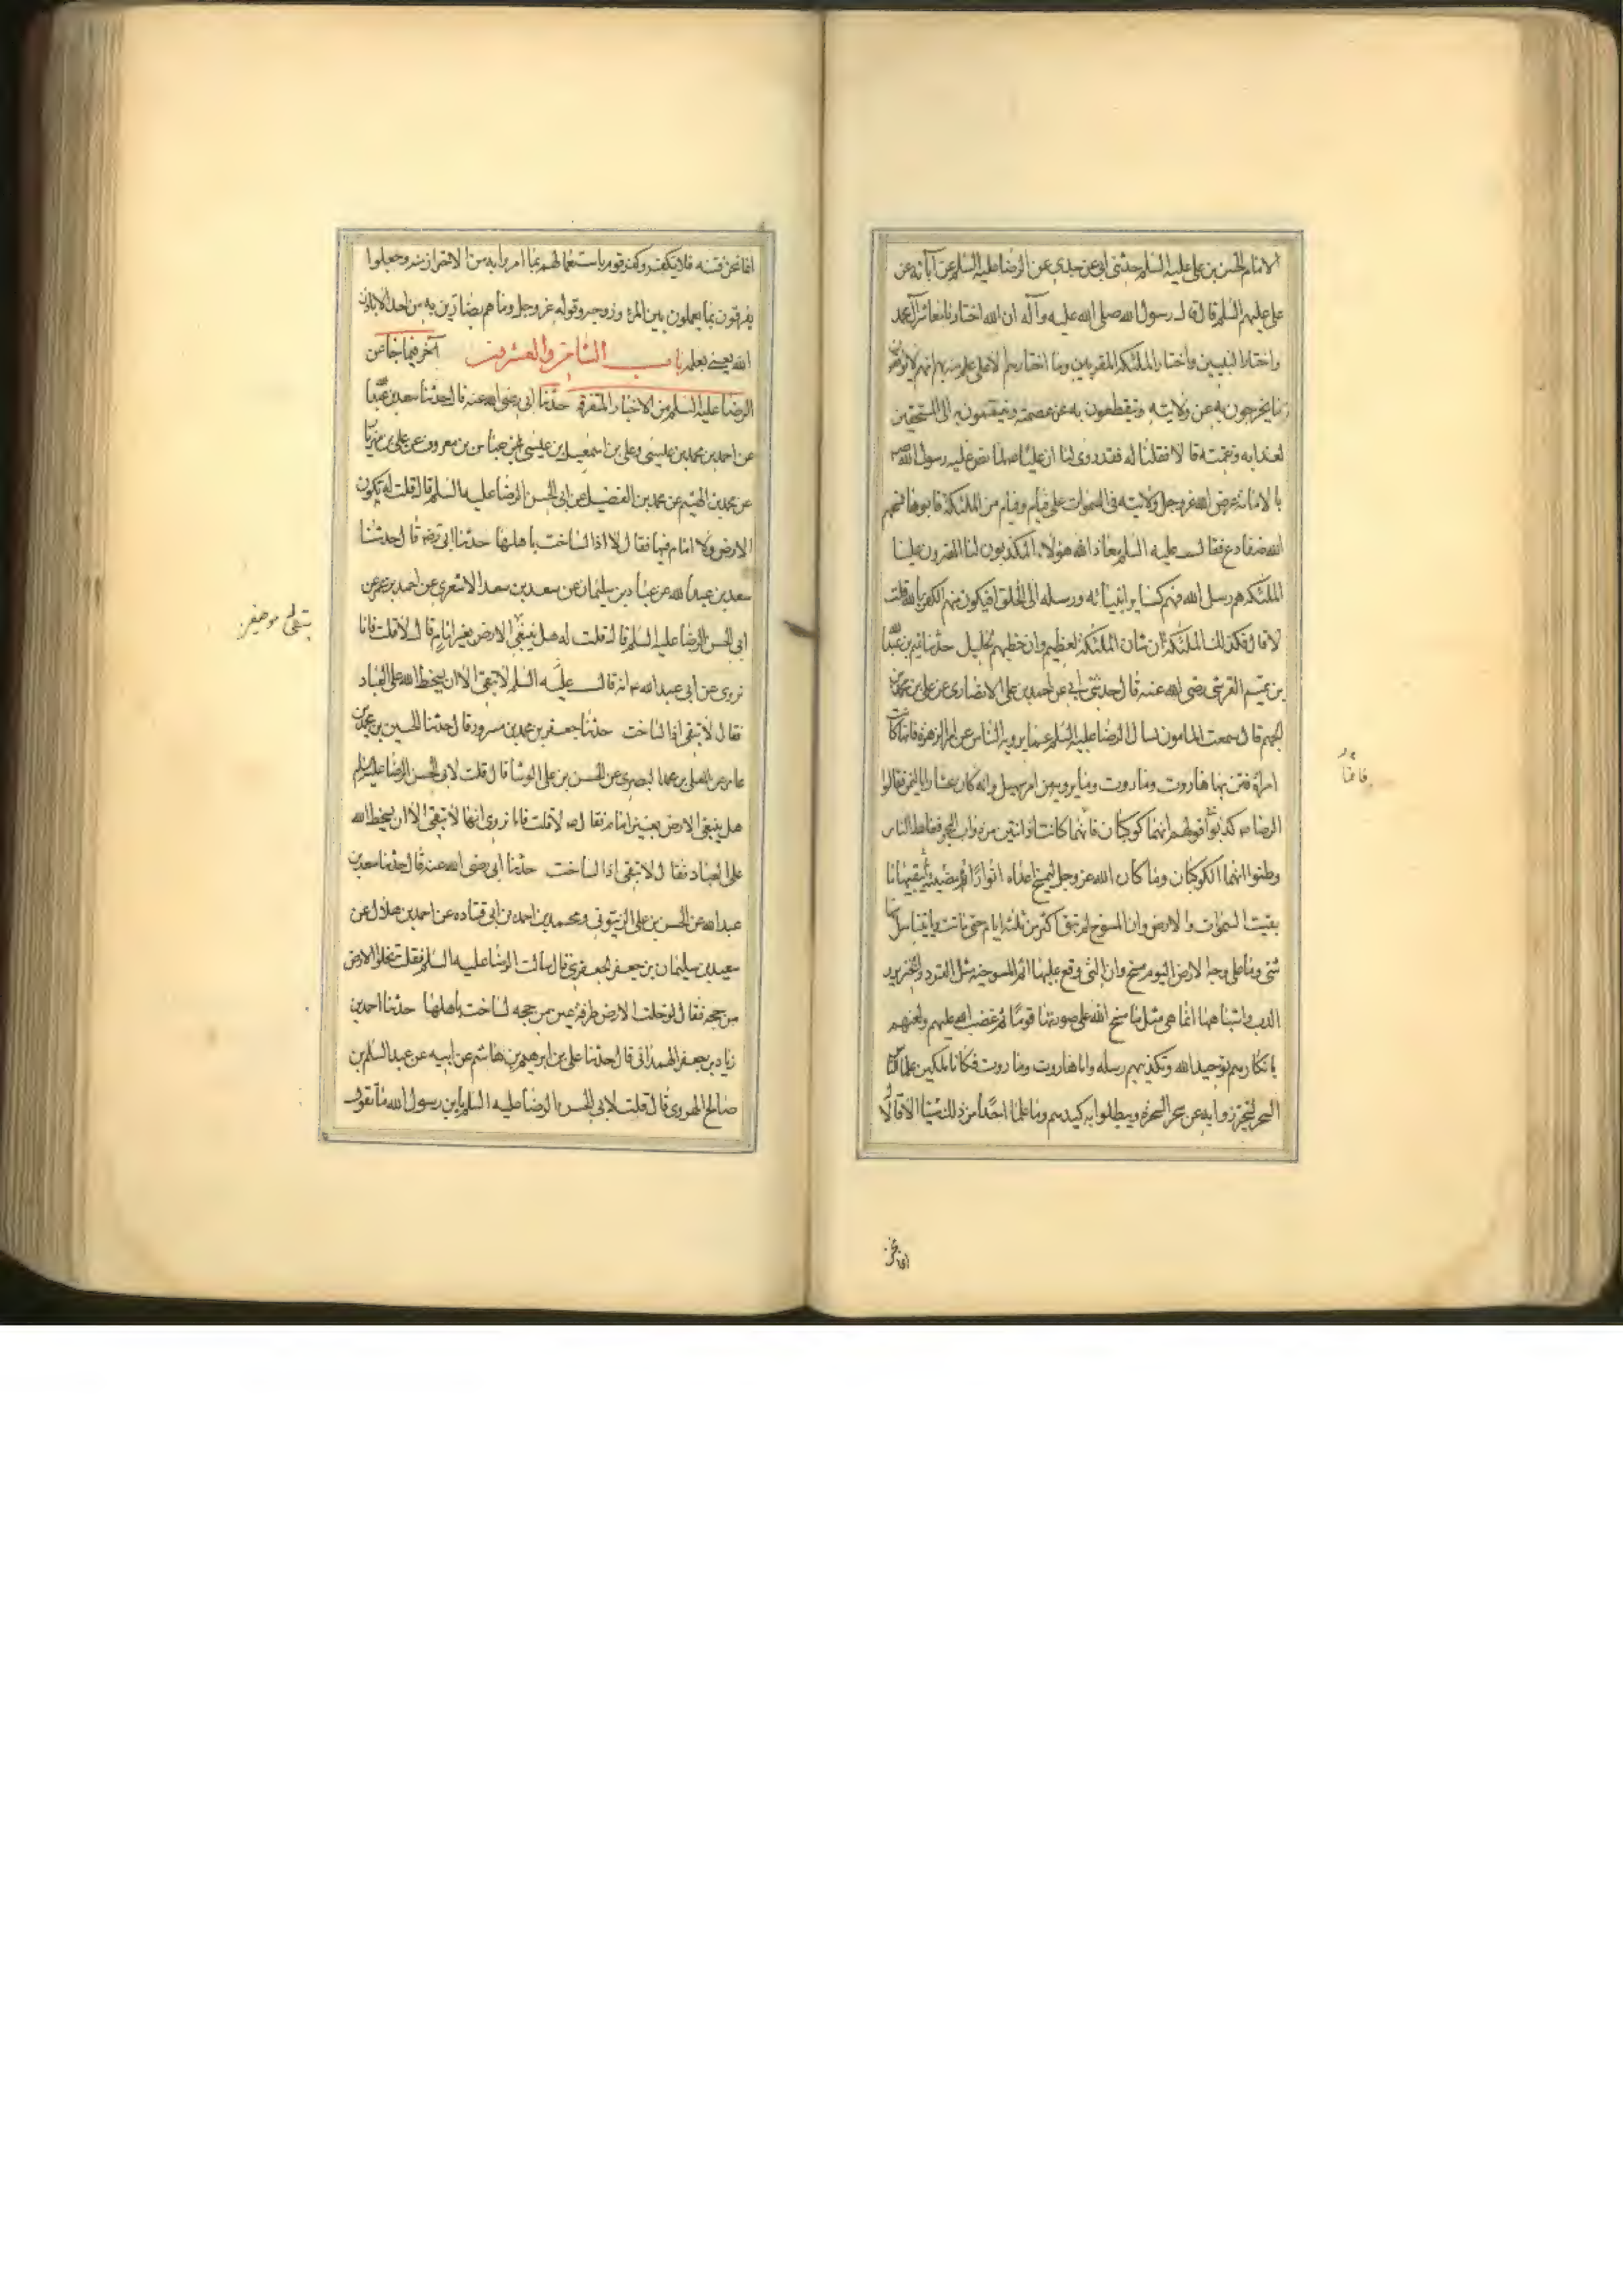 الامام الحسن بن علی علیه السلم حدثنی ابی عن جدی عن الرضا علیه السلم عن آبائه عن
علی علیهم السلم قال قال رسول الله صلی الله علیه وآله ان الله اختارنا معاشر آل محمد
واختار النبیین واختار الملئکة المقربین وما اختارهم الا علی علم منه بهم انهم لا یواقعون
ما یخرجون به عن ولایته وینقطعون به عن عصمته وینتمون به الی المستحقین
لعذابه ونقمته قالا فقلنا له فقد روی لنا ان علیا ص لما نص علیه رسول الله ص
بالامامة عرض الله عز وجل ولایته فی السموات علی فئام وفئام من الملئکة فابوها فمسخهم
الله ضفادع فقال علیه السلم معاذ الله هؤلاء المکذبون لنا المفترون علینا
الملئکة هم رسل الله فهم کسائر انبیائه ورسله الی الخلق افیکون منهم الکفر بالله قلت
لا قال فکذلک الملئکة ان شان الملئکة لعظیم وان خطبهم لجلیل حدثنا تمیم بن عبدالله
بن تمیم القرشی رضی الله عنه قال حدثنی ابی عن احمد بن علی الانصاری عن علی بن محمد بن
الجهم قال سمعت المامون یسال الرضا علیه السلم عما یرویه الناس عن امر الزهرة وانها کانت
امرأة فتن بها هاروت وماروت وما یروونه من امر سهیل وانه کان عشارا بالیمن فقال
الرضا ص کذبوا فی قولهم انهما کوکبان فانما کانتا دابتین من دواب البحر فغلط الناس
وظنوا انهما الکوکبان وما کان الله عز وجل لیمسخ اعداءه انوارا مضیئة ثم یبقیها ما
بقیت السموات والارض وان المسوخ لم تبق اکثر من ثلثة ایام حتی ماتت وما یتناسل منها
شئ وما علی وجه الارض الیوم مسخ وان التی وقع علیها اسم المسوخیة مثل القرد والخنزیر و
الدب واشباهها انما هی مثل ما مسخ الله علی صورتها قوما غضب الله علیهم ولعنهم
بانکارهم توحید الله وتکذیبهم رسله واما هاروت وماروت فکانا ملکین علما الناس
السحر لیتحرزوا به عن سحر السحرة ویبطلوا به کیدهم وما علما احدا من ذلک شیئا الا قالا
فانما
انما نحن
انما نحن فتنة فلا تکفر وکفر قوم باستعمالهم لما امروا به من الاحتراز منه وجعلوا
یفرقون بما یعملون بین المرء وزوجه وقوله عز وجل وما هم بضارین به من احد الا باذن
الله یعنی بعلمه باب الثامن والعشرون آخر فیما جاء عن
الرضا علیه السلم من الاخبار المتفرقة حدثنا ابی رضی الله عنه قال حدثنا سعد بن عبدالله
عن احمد بن محمد بن عیسی وعلی بن اسمعیل بن عیسی عن عباس بن معروف عن علی بن مهزیار
عن محمد بن الهیثم عن محمد بن الفضیل عن ابی الحسن الرضا علیه السلم قال قلت له تکون
الارض ولا امام فیها فقال لا اذا لساخت باهلها حدثنا ابی رضه قال حدثنا
سعد بن عبدالله عن عباد بن سلیمان عن سعد بن سعد الاشعری عن احمد بن عمر عن
ابی الحسن الرضا علیه السلم قال قلت له هل یبقی الارض بغیر امام قال لا قلت فانا
نروی عن ابی عبد الله ع انه قال علیه السلم لا تبقی الا ان یسخط الله علی العباد
فقال لا تبقی اذا لساخت حدثنا جعفر بن محمد بن مسرور قال حدثنا الحسین بن محمد بن
عامر عن المعلی بن محمد البصری عن الحسن بن علی الوشا قال قلت لابی الحسن الرضا علیه السلم
هل یبقی الارض بغیر امام فقال ص لا قلت فانا نروی انها لا تبقی الا ان یسخط الله
علی العباد فقال لا تبقی اذا لساخت حدثنا ابی رضی الله عنه قال حدثنا سعد بن
عبد الله عن الحسن بن علی الزیتونی ومحمد بن احمد بن ابی قتاده عن احمد بن هلال عن
سعید بن سلیمان بن جعفر الجعفری قال سالت الرضا علیه السلم فقلت تخلوا الارض
من حجه فقال لو خلت الارض طرفة عین من حجه لساخت باهلها حدثنا احمد بن
زیاد بن جعفر الهمدانی قال حدثنا علی بن ابرهیم بن هاشم عن ابیه عن عبد السلم بن
صالح الهروی قال قلت لابی الحسن الرضا علیه السلم یابن رسول الله ما تقول